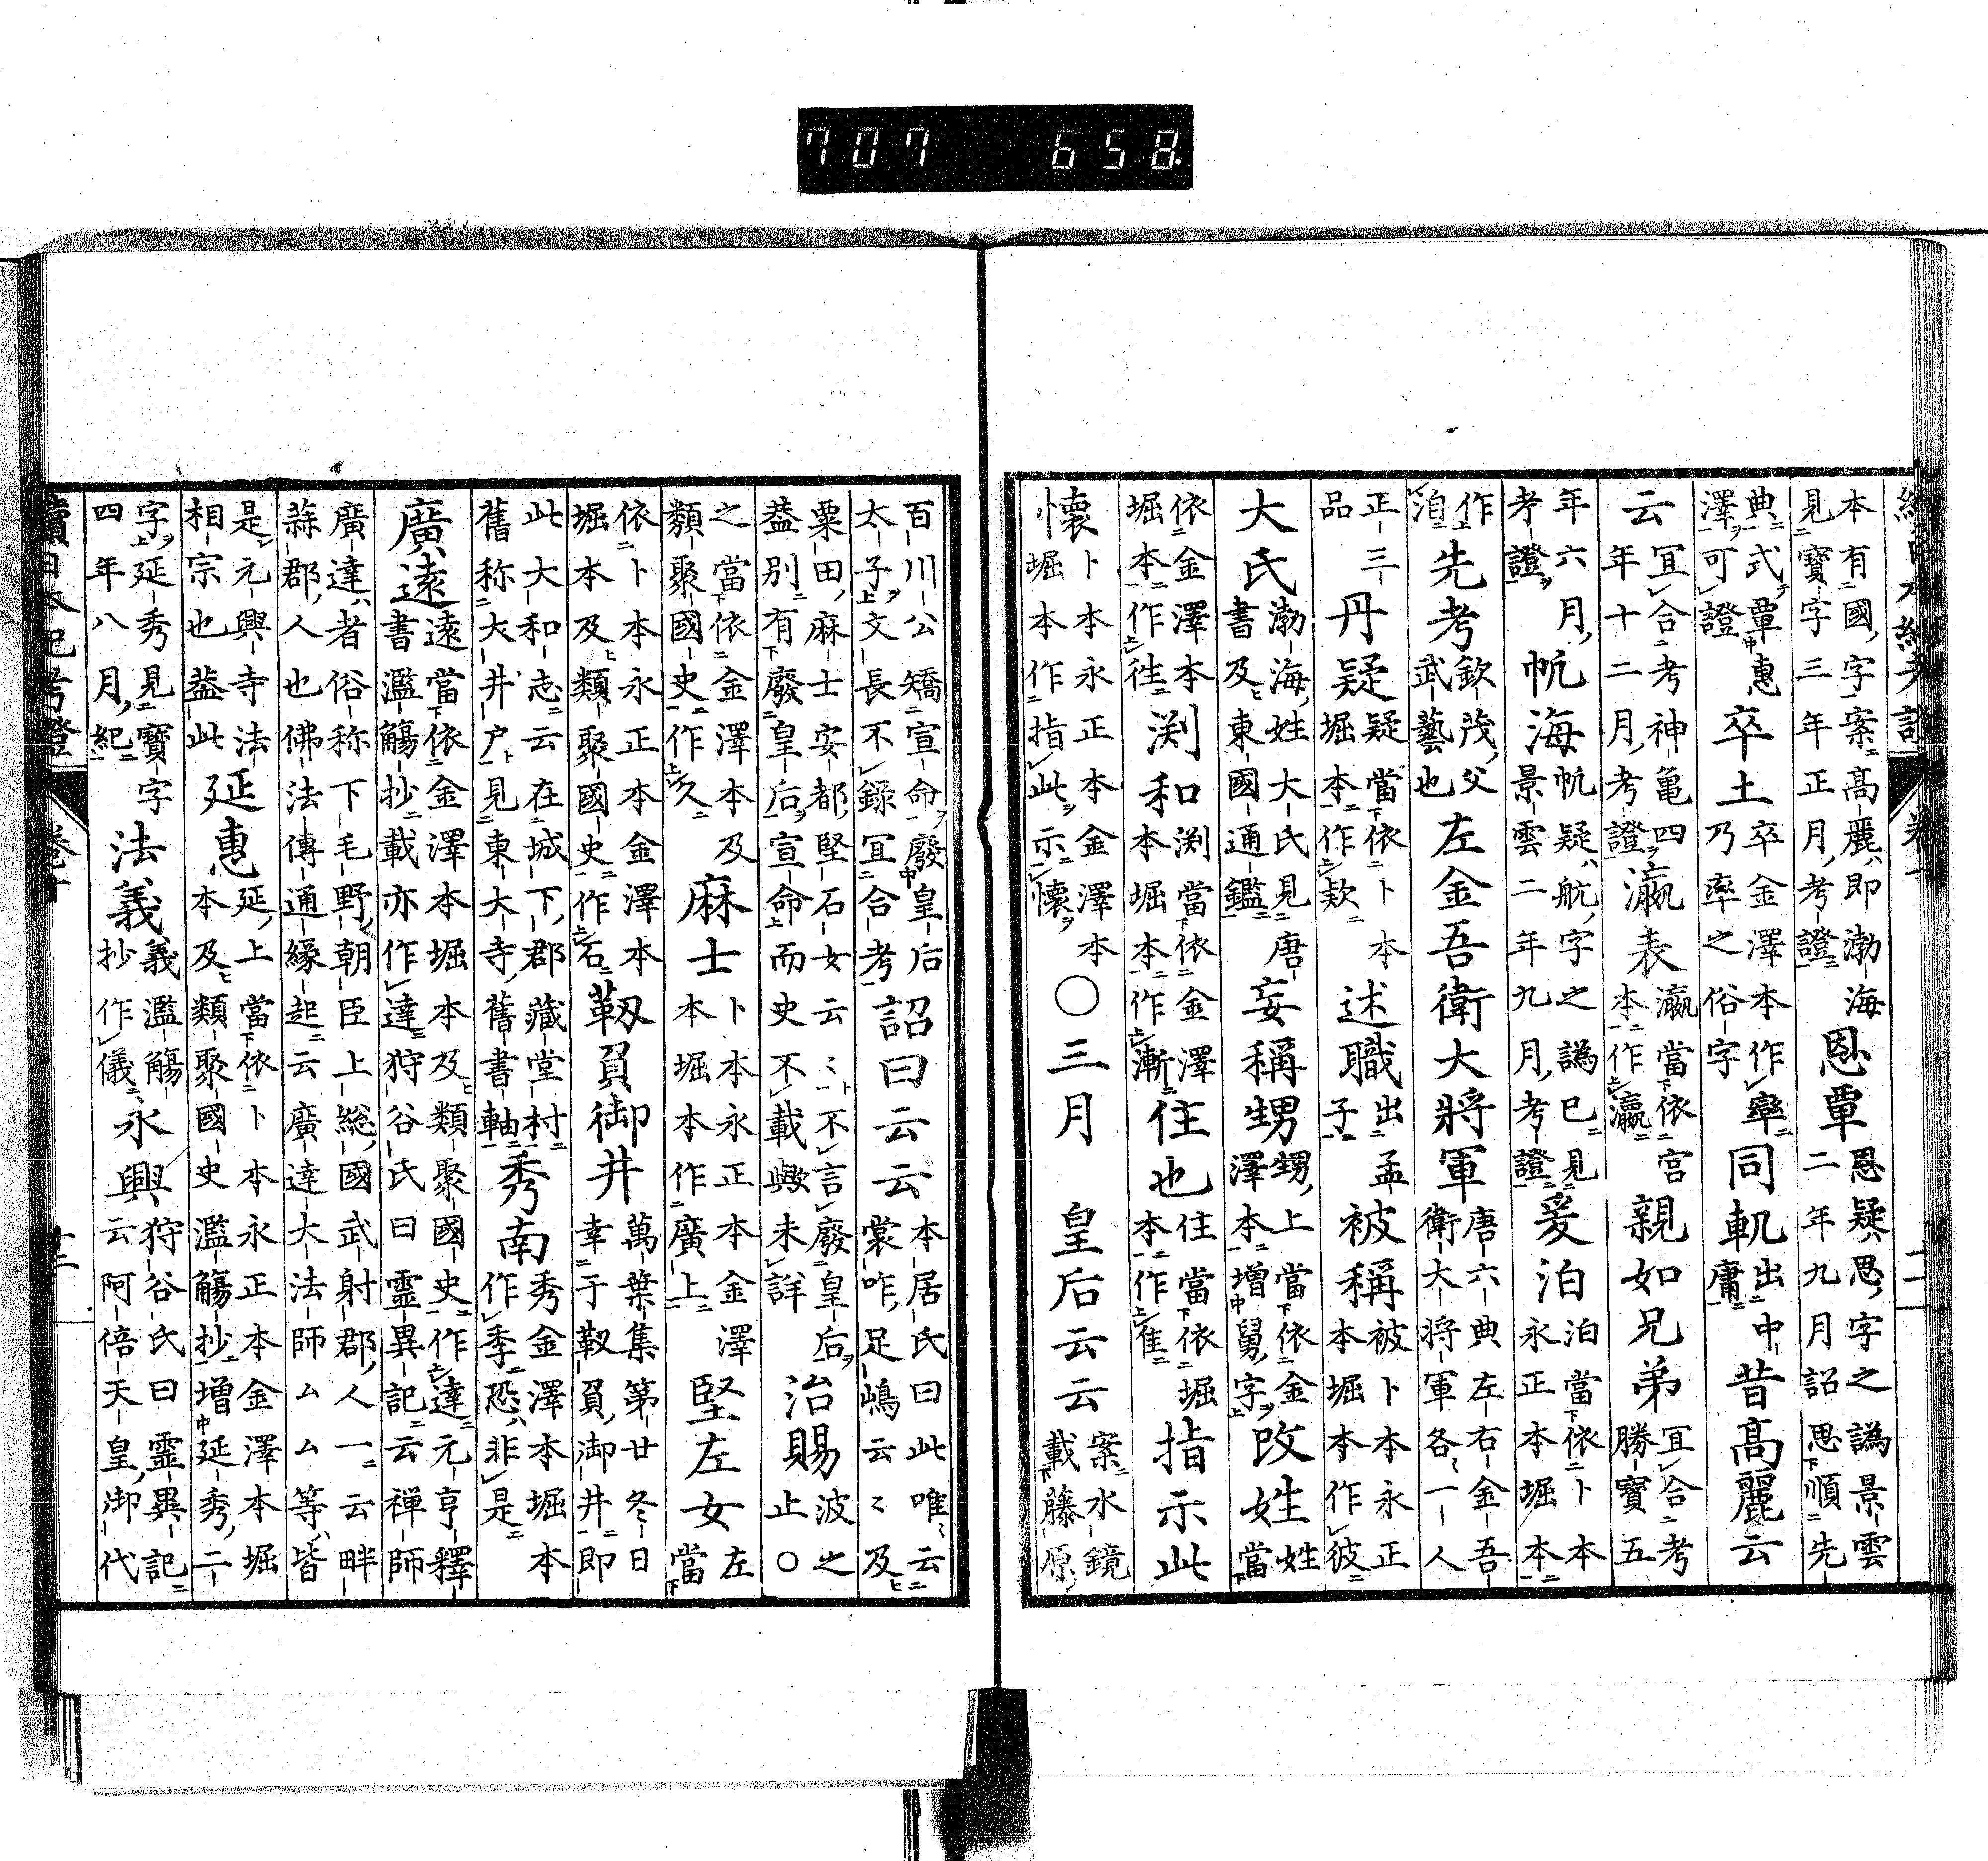 續日本紀考證
本有國字案高麗即渤海見寶字三年正月考證恩覃恩疑思字之譌景雲二年九月詔思順先
典式覃惠澤可證卒土卒金澤本作率乃率之俗字同軌出中庸昔高麗云
云宜合考神龜四年十二月考證瀛表瀛當依宮本作瀛親如兄弟宜合考勝寶五
年六月考證帆海帆疑航字之譌已見景雲二年九月考證爰泊泊當依卜本永正本堀本
作洎先考欽茂父武藝也左金吾衛大將軍唐六典左右金吾衛大將軍各々一人
正三品丹疑疑當依卜本堀本作欵述職出孟子被稱被卜本永正本堀本作彼
大氏渤海姓大氏見唐書及東國通鑑妄稱甥甥上當依金澤本增舅字改姓姓當
依金澤本堀本作往渕和渕當依金澤本堀本作漸住也住當依堀本作隹指示此
懷卜本永正本金澤本堀本作指此示懷○三月皇后云云案水鏡載藤原
百川公矯宣命廢皇后太子文長不錄宜合考詔曰云云本居氏曰此唯云裳咋足嶋云々及
粟田麻士安都堅石女云々不言廢皇后葢別有廢皇后宣命而史不載歟未詳治賜波之止○
之當依金澤本及類聚國史作久麻士卜本永正本金澤本堀本作廣上堅左女左當
依卜本永正本金澤本堀本及類聚國史作石靱負御井萬葉集第廿冬日幸于靱負御井即
此大和志云在城下郡藏堂村舊称大井戸見東大寺舊書軸秀南秀金澤本堀本作季恐非是
廣遠遠當依金澤本堀本及類聚國史作達元亨釋書濫觴抄載亦作達狩谷氏曰靈異記云禅師
廣達者俗称下毛野朝臣上総國武射郡人一云畔蒜郡人也佛法傳通緣起云廣達大法師ムム等皆
是元興寺法相宗也葢此延惠延上當依卜本永正本金澤本堀本及類聚國史濫觴抄增延秀二
字延秀見寶字四年八月紀法義義濫觴抄作儀永興狩谷氏曰靈異記云阿倍天皇御代
續日本紀考證 卷十 十二
707 658